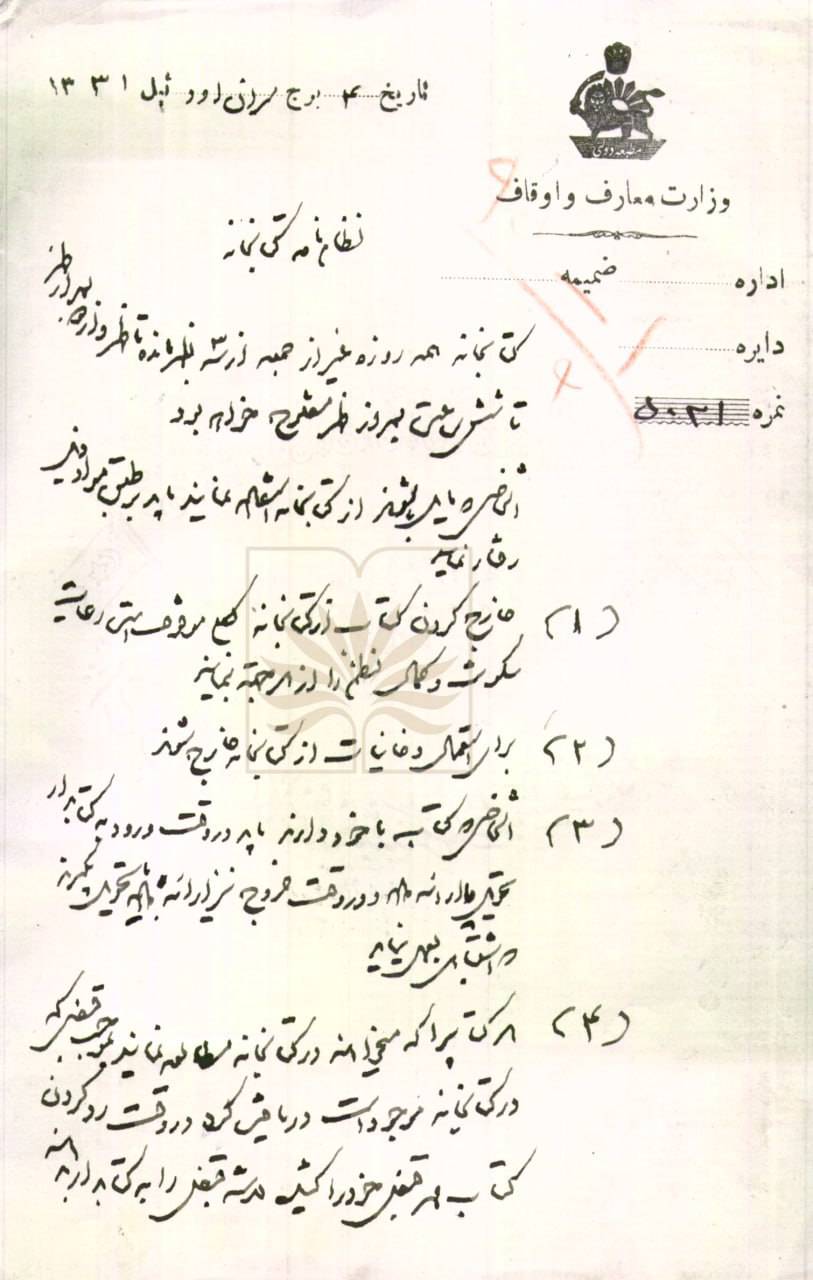 تاریخ ۴ برج سرطان اودئیل ۱۳۳۱
وزارت معارف و اوقاف
نظام نامه کتابخانه
اداره ضمیمه
دایره
نمره ۵۰۳۱
کتابخانه همه روزه غیر از جمعه از سه بظهر مانده تا ظهر و از بعد از ظهر
تا شش ساعت بعد از ظهر مفتوح خواهد بود
اشخاصی که مایل باشند از کتابخانه استفاده نمایند باید بر طبق مواد ذیل
رفتار نمایند
(۱) خارج کردن کتاب از کتابخانه کلیه موقوف است رعایت
سکوت و کمال نظم را از هر جهت نمایند
(۲) برای استعمال دخانیات از کتابخانه خارج شوند
(۳) اشخاصی که کتاب با خود دارند باید در وقت ورود به کتابدار
ارائه داده و در وقت خروج نیز ارائه
که اشتباهی بعمل نیاید
(۴) هر کتابیرا که میخواهند در کتابخانه مطالعه نمایند بموجب قبضی که
در کتابخانه موجود است دریافت کرده در وقت رد کردن
کتاب قبض خود را گرفته را به کتابدار بدهند